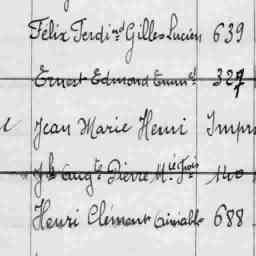 Félix Ferdind Gilles Lucien 639
Ernest Edmond Emmel 327
Jean Marie Henri Impr
Jh Augte Pierre Mie Fois 140
Henri Clément Aimable 688